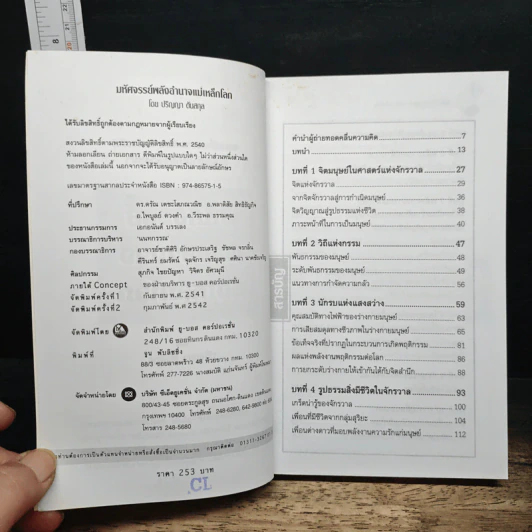 มหัศจรรย์พลังอำนาจแม่เหล็กโลก
โดย ปริญญา ตันสกุล
ได้รับลิขสิทธิ์ถูกต้องตามกฎหมายจากผู้เรียบเรียง
สงวนลิขสิทธิ์ตามพระราชบัญญัติลิขสิทธิ์ พ.ศ. 2540
ห้ามลอกเลียน ถ่ายเอกสาร ตีพิมพ์ในรูปแบบใดๆ ไม่ว่าส่วนหนึ่งส่วนใด
ของหนังสือเล่มนี้ นอกจากจะได้รับอนุญาตเป็นลายลักษณ์อักษร
เลขมาตรฐานสากลประจำหนังสือ ISBN : 974-86575-1-5
ที่ปรึกษา
ประธานกรรมการ เอกอนันต์ บรรเลง
บรรณาธิการบริหาร
กองบรรณาธิการ
ศิลปกรรม
ภายใต้ Concept ของฝ่ายบริหาร ยู-บอส คอร์ปอเรชั่น
จัดพิมพ์ครั้งที่ 1 กันยายน พ.ศ. 2541
จัดพิมพ์ครั้งที่ 2 กุมภาพันธ์ พ.ศ. 2542
จัดพิมพ์โดย สำนักพิมพ์ ยู-บอส คอร์ปอเรชั่น
248/16 ซอยทิมกรีนแลนด์ กทม. 10320
พิมพ์ที่ ฐาน พับลิชชิ่ง
จัดจำหน่ายโดย บริษัท ซีเอ็ดยูเคชั่น จำกัด (มหาชน)
กรุงเทพฯ 10400
โทรสาร 248-5680
ราคา 253 บาท
CL
สารบัญ
คำนำผู้ถ่ายทอดคลื่นความคิด 7
บทนำ 13
บทที่ 1 จิตมนุษย์ในศาสตร์แห่งจักรวาล 27
จิตแห่งจักรวาล 29
จากจิตจักรวาลสู่การกำเนิดมนุษย์ 36
จิตวิญญาณสู่รูปธรรมแห่งชีวิต 38
ภาระหน้าที่ในการเป็นมนุษย์ 40
บทที่ 2 วิถีแห่งกรรม 47
พันธกรรมของมนุษย์ 48
ระดับพันธกรรมของมนุษย์ 50
แนวทางการกำจัดความกลัว 56
บทที่ 3 นักรบแห่งแสงสว่าง 59
คุณสมบัติทางไฟฟ้าของร่างกายมนุษย์ 63
การเสียสมดุลทางชีวภาพในร่างกายมนุษย์ 65
ข้อเท็จจริงที่ปรากฏในกระบวนการเกิดพฤติกรรม 68
ผลแห่งพลังงานพฤติกรรมต่อโลก 81
การยกระดับร่างกายให้เข้ากันได้กับจิตสำนึก 88
บทที่ 4 รูปธรรมสิ่งมีชีวิตในจักรวาล 93
เกร็ดน่ารู้ของจักรวาล 100
เพื่อนที่มีชีวิตจากกลุ่มสุริยะ 104
เพื่อนต่างดาวที่มอบพลังงานความรักแก่มนุษย์ 112